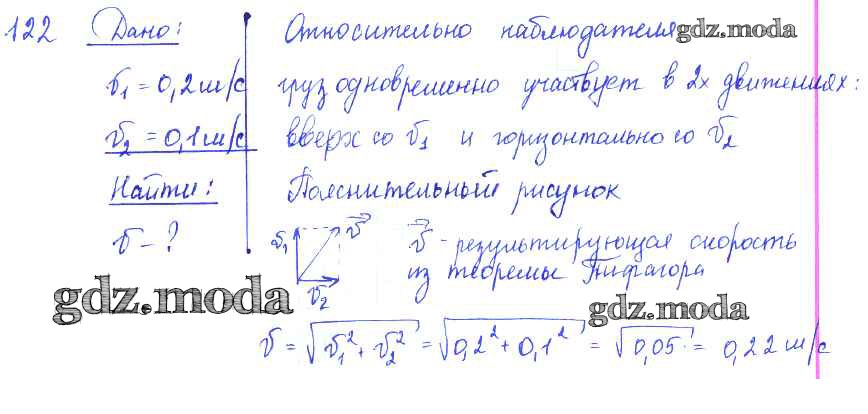 122 Дано: Относительно наблюдателя gdz.moda
v₁ = 0,2 м/с груз одновременно участвует в 2х движениях:
v₂ = 0,1 м/с вверх со v₁ и горизонтально со v₂
Найти: Пояснительный рисунок
v - ? v₁ v⃗ v⃗ - результирующая скорость
v₂ из теоремы Пифагора
gdz.moda gdz.moda
v = √v₁² + v₂² = √0,2² + 0,1² = √0,05 = 0,22 м/с